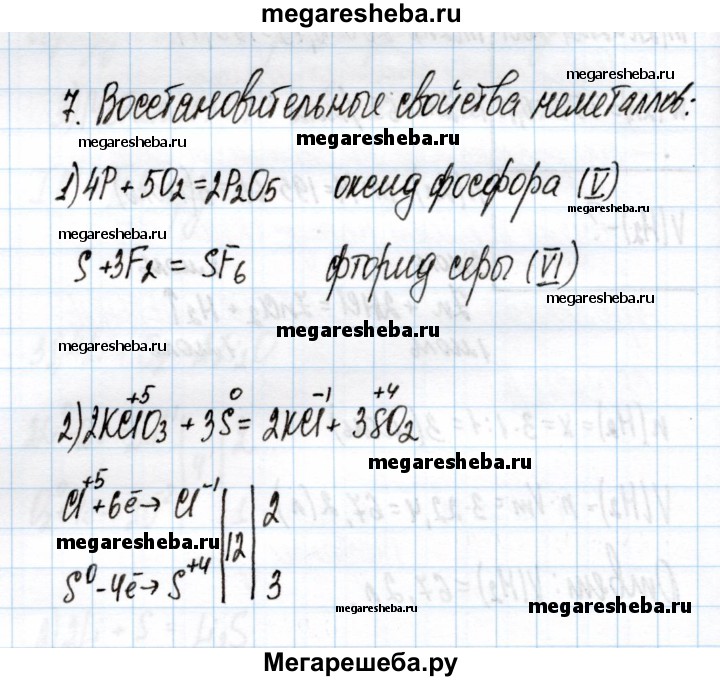 megaresheba.ru
megaresheba.ru
7. Восстановительные свойства неметаллов:
megaresheba.ru
megaresheba.ru
1) 4P + 5O₂ = 2P₂O₅ оксид фосфора (V)
megaresheba.ru
megaresheba.ru
S + 3F₂ = SF₆ фторид серы (VI)
megaresheba.ru
megaresheba.ru
megaresheba.ru
2) 2KCl⁺⁵O₃ + 3S⁰ = 2KCl⁻¹ + 3S⁺⁴O₂
megaresheba.ru
Cl⁺⁵ + 6ē → Cl⁻¹ | | 2
megaresheba.ru |12|
S⁰ - 4ē → S⁺⁴ | | 3
megaresheba.ru
megaresheba.ru
Мегарешеба.ру